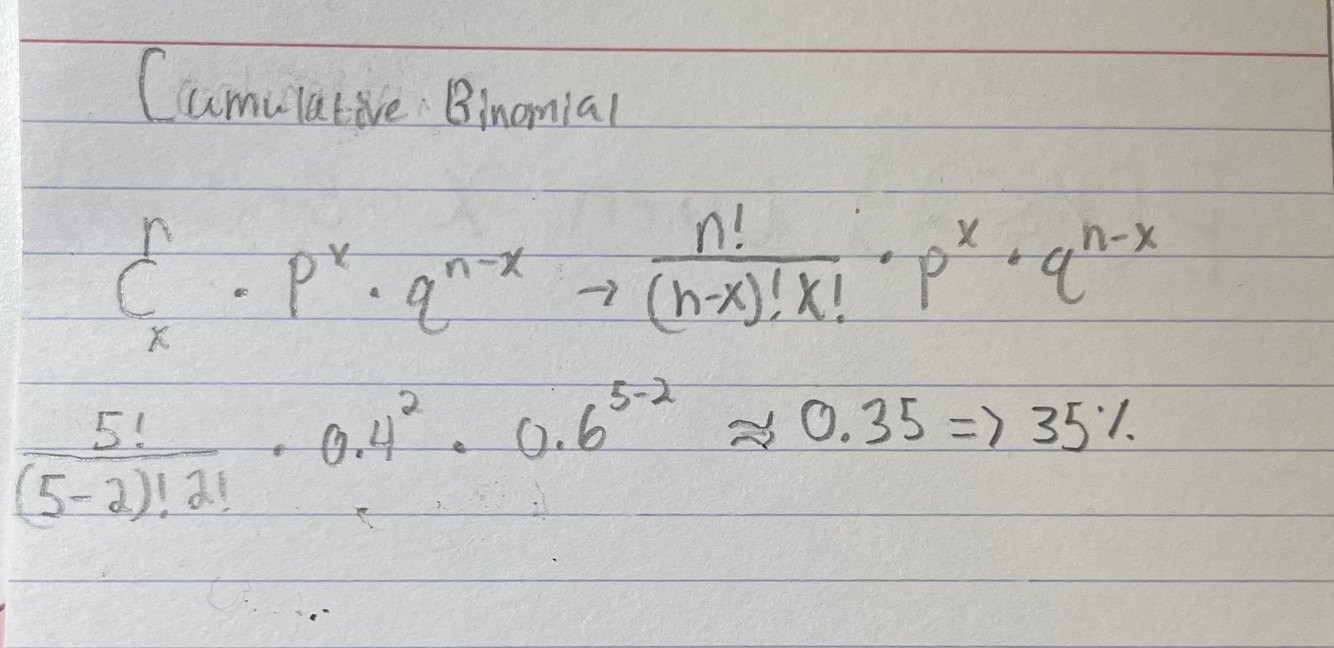 Cumulative Binomial
nCx · p^x · q^(n-x) → n!/((n-x)! x!) · p^x · q^(n-x)
5!/((5-2)! 2!) · 0.4^2 · 0.6^(5-2) ≈ 0.35 => 35%